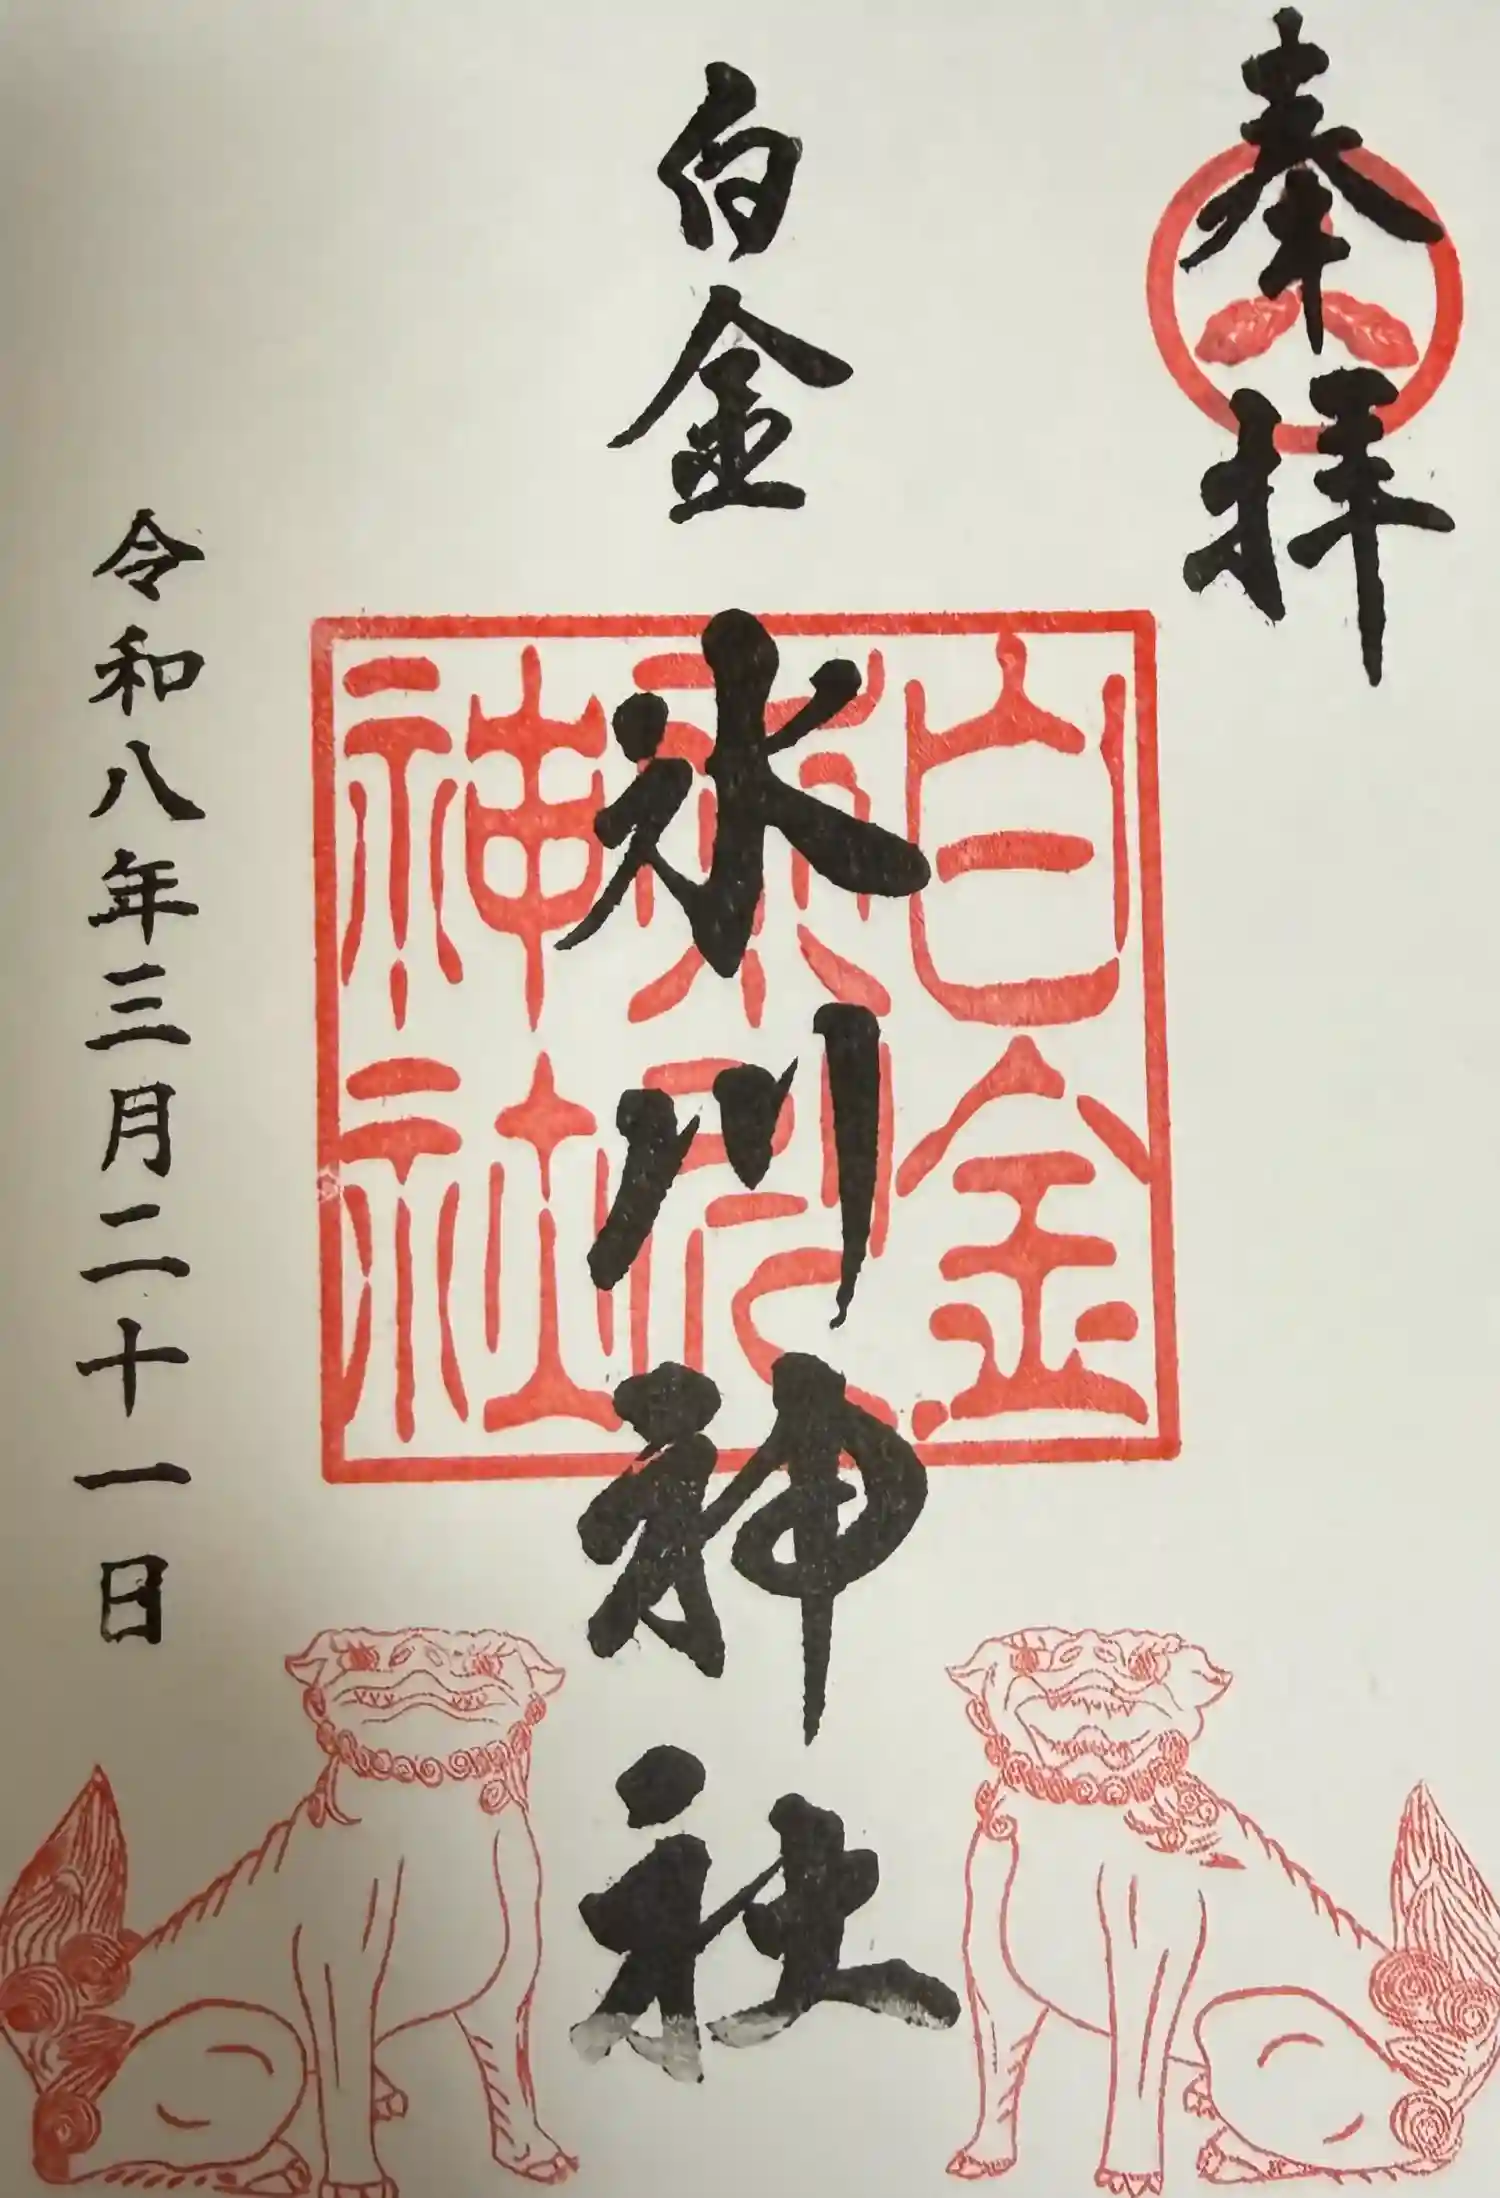 奉拝
白金 氷川神社
白金
氷川
神社
令和八年三月二十一日